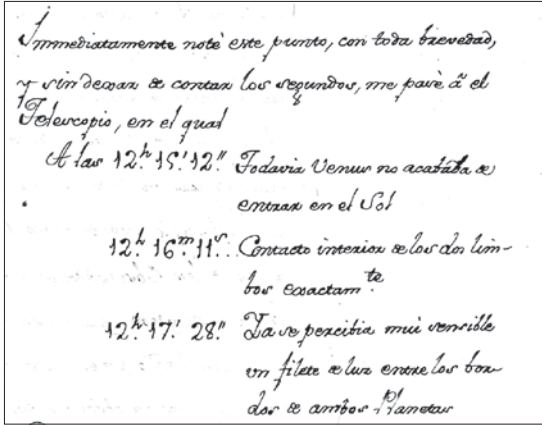 Immediatamente noté este punto, con toda brevedad,
y sin dexar de contar los segundos, me pasè â el
Telescopio, en el qual
A las 12.h 15.' 12." Todavia Venus no acababa de
entrar en el Sol
12.h 16.m 11.s.. Contacto interior de los dos lim-
bos exactam.te
12.h 17.' 28." Ya se percibia mui sensible
un filete de luz entre los bor-
dos de ambos Planetas